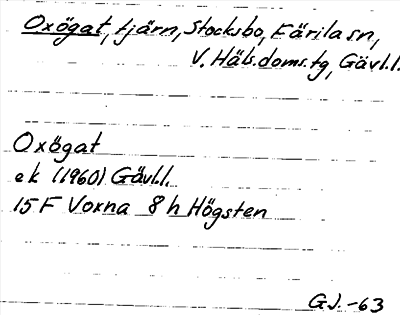 Oxögat, tjärn, Stocksbo, Färila sn,
V. Häls. doms. tg, Gävl. l.
Oxögat
ek (1960) Gävl. l.
15 F Voxna 8 h Högsten
G J. -63